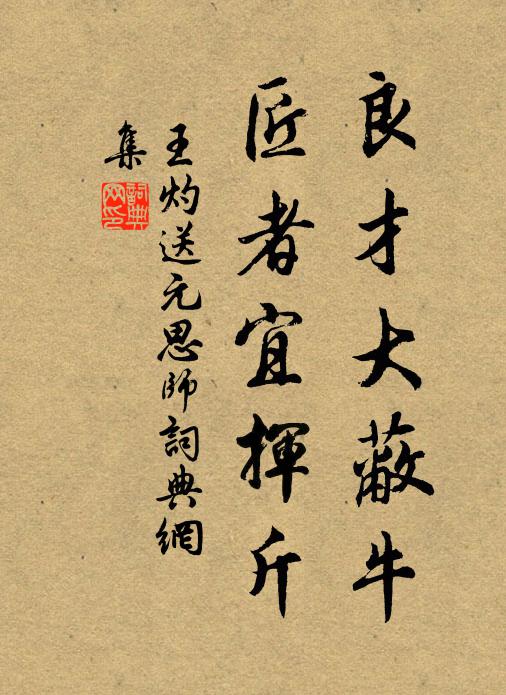 良才大蔽牛
匠者宜揮斤
王灼送元思師詞典網
集
詞典网印